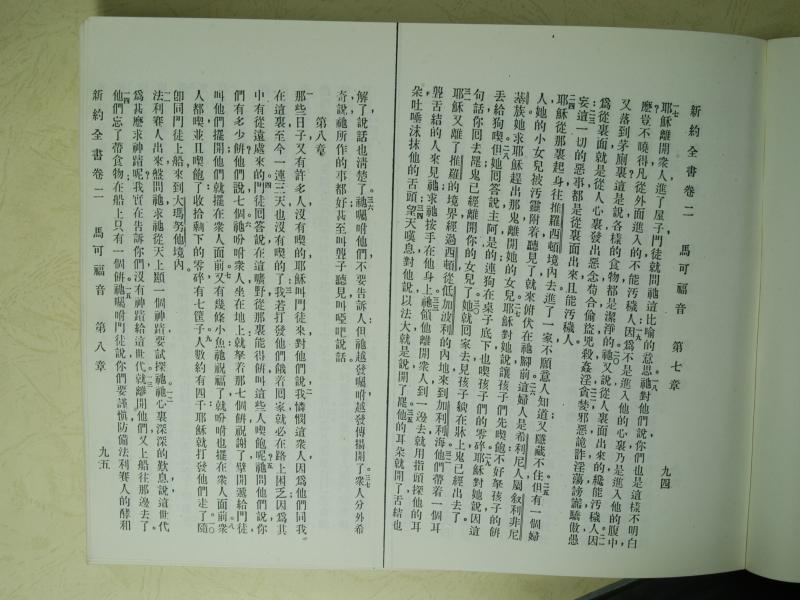 新約全書卷二　馬可福音　第七章　九四
一七耶穌離開衆人進了屋子門徒就問祂這比喻的意思祂對他們說你們也是這樣不明白
麽豈不曉得凡從外面進入的不能汚穢人因爲不是進入他的心裏乃是進入他的腹中
又落到茅厠裏這是說各樣的食物都是潔淨的祂又說從人裏面出來的纔能汚穢人因
爲從裏面就是從人心裏發出惡念苟合偷盜兇殺姦淫貪婪邪惡詭詐淫蕩謗讟驕傲愚
妄這一切的惡事都是從裏面出來且能汚穢人
耶穌從那裏起身往推羅西頓境內去進了一家不願意人知道又隱藏不住但有一個婦
人她的小女兒被汚靈附着聽見了就來俯伏在祂腳前這婦人是希利尼人屬叙利非尼
基族她求耶穌趕出那鬼離開她的女兒耶穌對她說讓孩子們先喫飽不好拏孩子的餅
丟給狗喫但她回答說主阿是的連狗在桌子底下也喫孩子們的零碎耶穌對她說因這
句話你回去罷鬼已經離開你的女兒了她就回家去見孩子躺在牀上鬼已經出去了
耶穌又離了推羅的境界經過西頓從低加波利的內地來到加利利海他們帶着一個耳
聾舌結的人來見祂求祂按手在他身上祂領他離開衆人到一邊去就用指頭探他的耳
朵吐唾沫抹他的舌頭望天嘆息對他說以法大就是說開了罷他的耳朵就開了舌結也
解了說話也淸楚了祂囑咐他們不要告訴人但祂越發囑咐越發傳揚開了衆人分外希
奇說祂所作的事都好甚至叫聾子聽見叫啞吧說話
第八章
那些日子又有許多人沒有喫的耶穌叫門徒來對他們說我憐憫這衆人因爲他們同我
在這裏至今一連三天也沒有喫的了我若打發他們餓着回家就必在路上困乏因爲其
中有從遠處來的門徒回答說在這曠野從那裏能得餅叫這些人喫飽呢祂問他們說你
們有多少餅他們說七個祂吩咐衆人坐在地上就拏着那七個餅祝謝了擘開遞給門徒
叫他們擺開他們就擺在衆人面前又有幾條小魚祂祝福了就吩咐也擺在衆人面前衆
人都喫並且喫飽了收拾剩下的零碎有七筐子人數約有四千耶穌就打發他們走了隨
卽同門徒上船來到大瑪努他境內
法利賽人出來盤問祂求祂從天上顯一個神蹟要試探祂祂心裏深深的歎息說這世代
爲甚麽求神蹟呢我實在告訴你們沒有神蹟給這世代就離開他們又上船往那邊去了
他們忘了帶食物在船上只有一個餅祂囑咐門徒說你們要謹愼防備法利賽人的酵和
新約全書卷二　馬可福音　第八章　九五